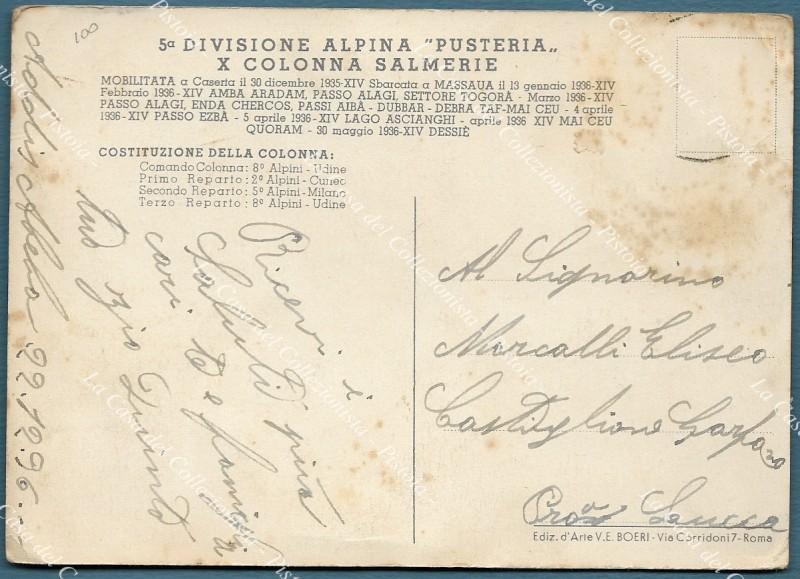 100
5ª DIVISIONE ALPINA "PUSTERIA„
X COLONNA SALMERIE
MOBILITATA a Caserta il 30 dicembre 1935-XIV Sbarcata a MASSAUA il 13 gennaio 1936-XIV
Febbraio 1936-XIV AMBA ARADAM, PASSO ALAGI, SETTORE TOGORÀ - Marzo 1936-XIV
PASSO ALAGI, ENDA CHERCOS, PASSI AIBÀ - DUBBAR - DEBRA TAF-MAI CEU - 4 aprile
1936-XIV PASSO EZBÀ - 5 aprile 1936-XIV LAGO ASCIANGHI - aprile 1936 XIV MAI CEU
QUORAM - 30 maggio 1936-XIV DESSIÈ
COSTITUZIONE DELLA COLONNA:
Comando Colonna: 8º Alpini - Udine
Primo Reparto: 2º Alpini - Cuneo
Secondo Reparto: 5º Alpini - Milano
Terzo Reparto: 8º Alpini - Udine
Addis Abeba 22.12.96.
Ricevi i
Saluti più
cari te e famiglia
tuo zio
Al Signorino
Marcalli Eliseo
Castiglione Garfana
Prov Lucca
Ediz. d'Arte V.E. BOERI - Via Corridoni 7 - Roma
La Casa del Collezionista - Pistoia